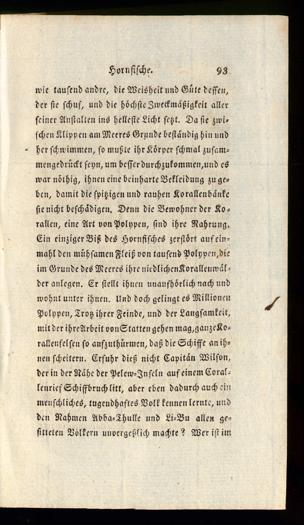 Hornfische. 93
wie tausend andre, die Weisheit und Güte dessen,
der sie schuf, und die höchste Zweckmäßigkeit aller
seiner Anstalten ins helleste Licht sezt. Da sie zwi-
schen Klippen am Meeres Grunde beständig hin und
her schwimmen, so mußte ihr Körper schmal zusam-
mengedrückt seyn, um besser durchzukommen, und es
war nöthig, ihnen eine beinharte Bekleidung zu ge-
ben, damit die spizigen und rauhen Korallenbänke
sie nicht beschädigen. Denn die Bewohner der Ko-
rallen, eine Art von Polypen, sind ihre Nahrung.
Ein einziger Biß des Hornfisches zerstört auf ein-
mahl den mühsamen Fleiß von tausend Polypen, die
im Grunde des Meeres ihre niedlichen Korallenwäl-
der anlegen. Er stellt ihnen unaufhörlich nach und
wohnt unter ihnen. Und doch gelingt es Millionen
Polypen, Troz ihrer Feinde, und der Langsamkeit,
mit der ihre Arbeit von Statten gehen mag, ganze Ko-
rallenfelsen so aufzuthürmen, daß die Schiffe an ih-
nen scheitern. Erfuhr dieß nicht Capitän Wilson,
der in der Nähe der Pelew-Inseln auf einem Coral-
lenrief Schiffbruch litt, aber eben dadurch auch ein
menschliches, tugendhaftes Volk kennen lernte, und
den Nahmen Abba-Thulle und Li-Bu allen ge-
sitteten Völkern unvergeßlich machte? Wer ist im